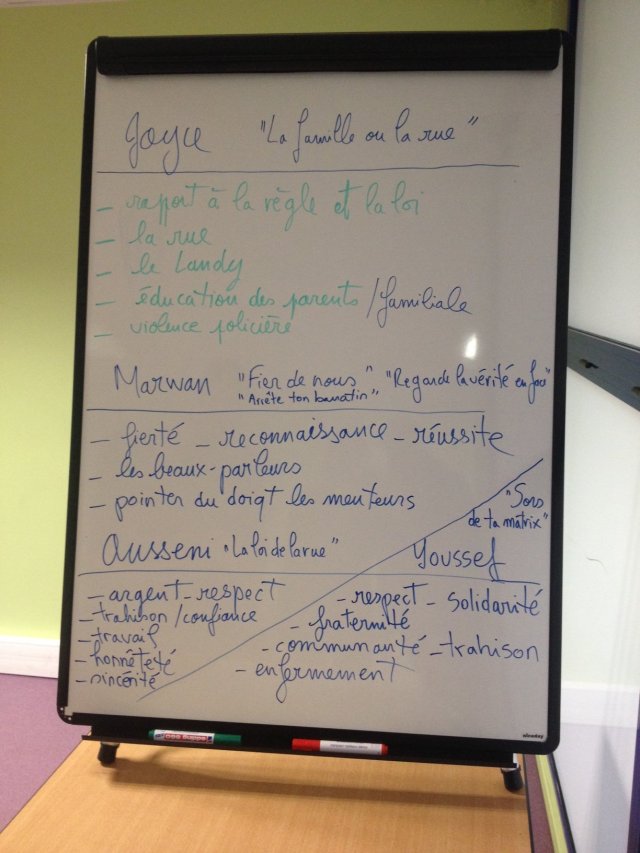 Joyce "La famille ou la rue"
– rapport à la règle et la loi
– la rue
– le Landy
– éducation des parents / familiale
– violence policière
Marwan "Fier de nous" "Regarde la vérité en face"
"Arrête ton baratin"
– fierté – reconnaissance – réussite
– les beaux-parleurs
– pointer du doigt les menteurs
Ousseni "La loi de la rue"
– argent – respect
– trahison / confiance
– travail
– honnêteté
– sincérité
"Sors
de ta matrix"
Youssef
– respect – solidarité
– fraternité
– communauté – trahison
– enfermement
nobo